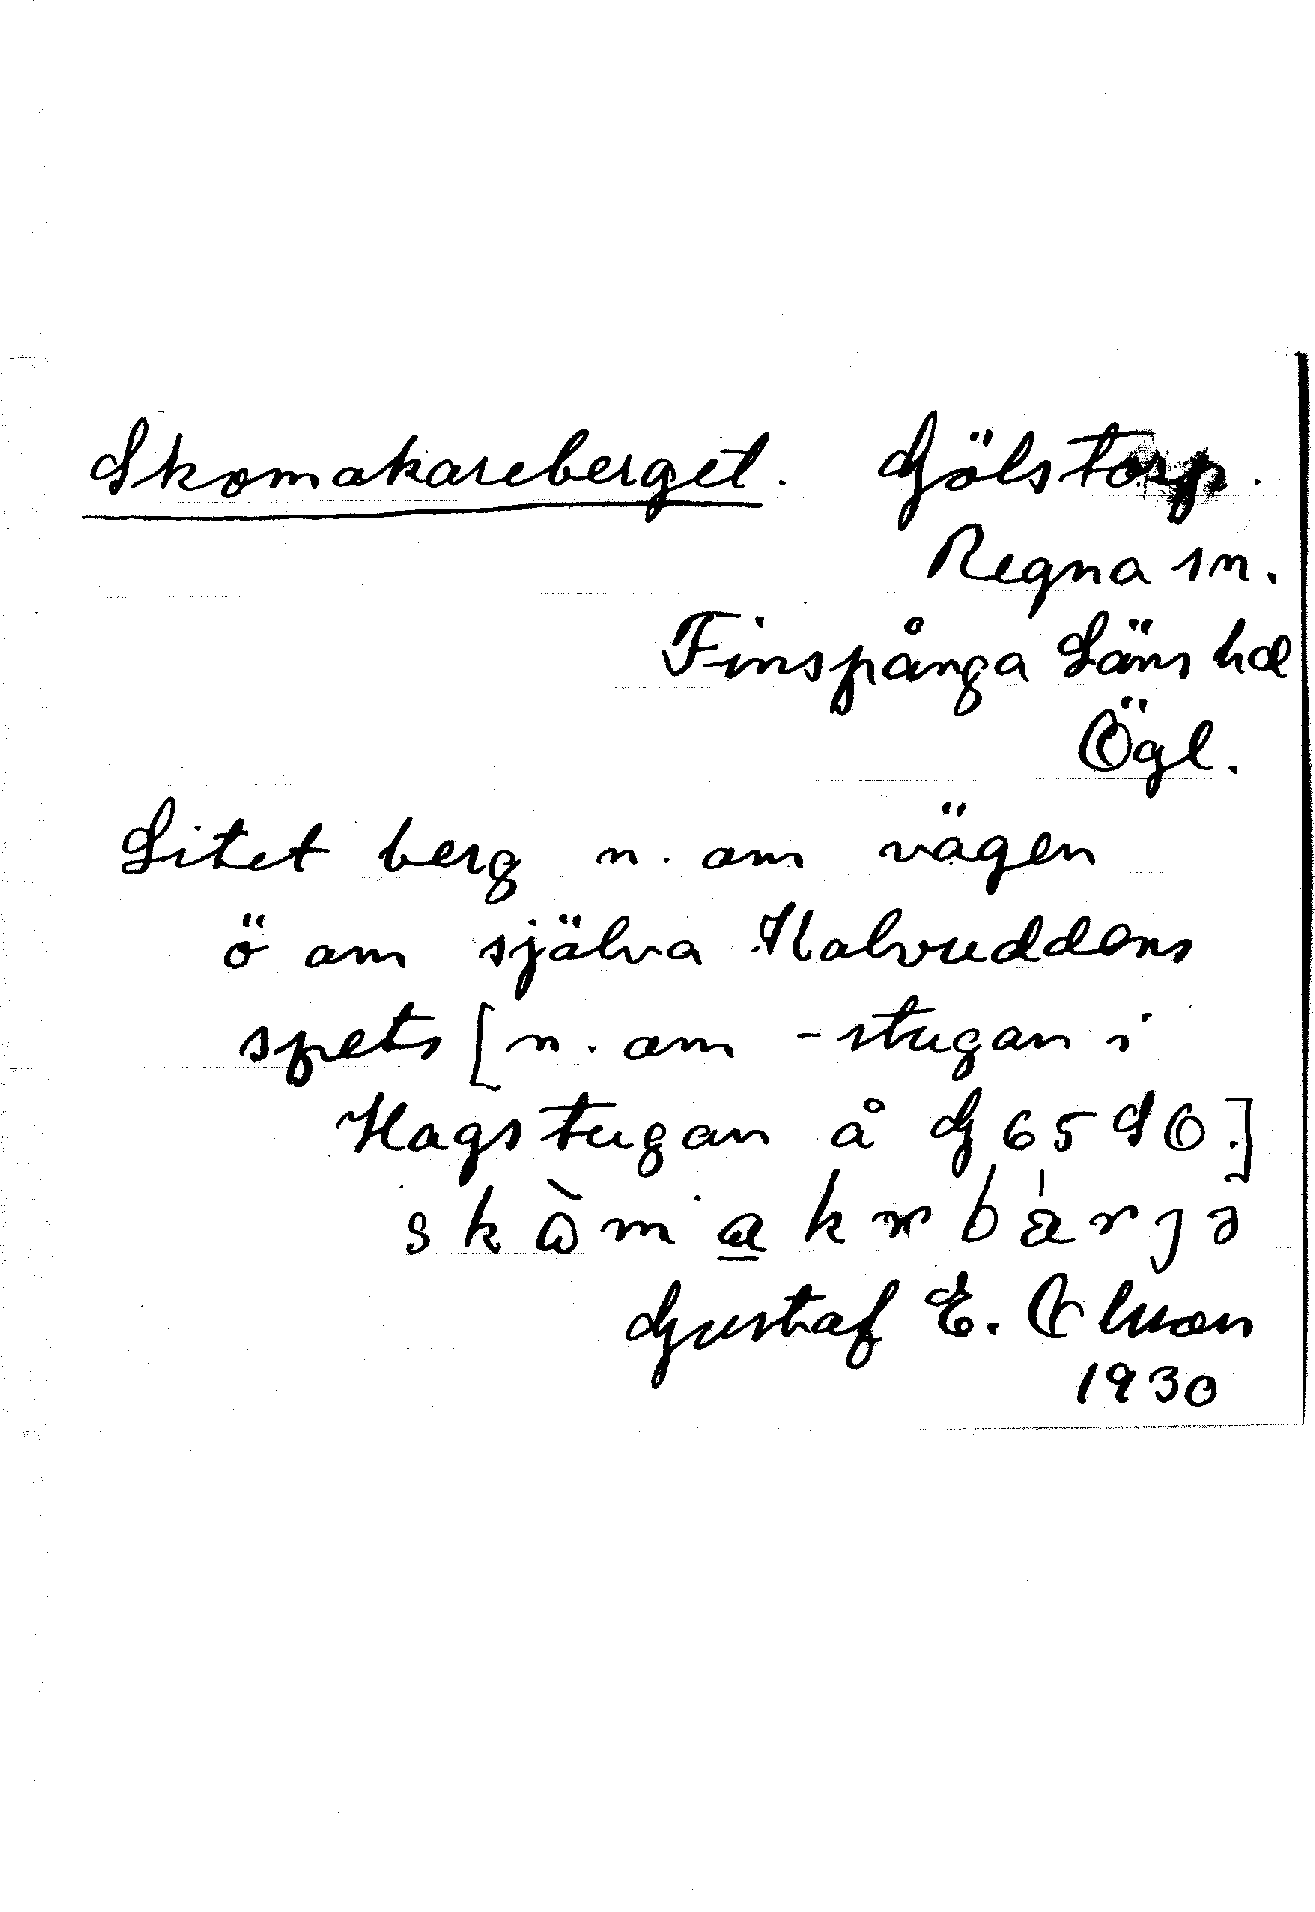 Skomakareberget. Gölstorp.
Regna sn.
Finspånga Läns hd
Ögl.
Litet berg n. om vägen
ö om själva Halvuddens
spets [n. om -stugan i
Hagstugan å G 65 SO.]
Gustaf E. Olsson
1930